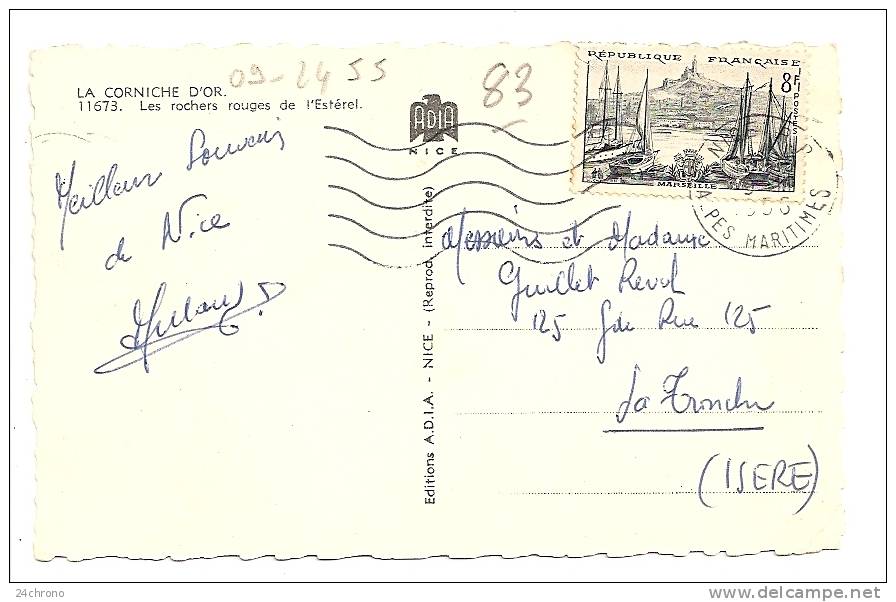 LA CORNICHE D'OR.
11673. Les rochers rouges de l'Estérel.
09-24 55
83
ADIA
NICE
RÉPUBLIQUE FRANÇAISE
8F
POSTES
MARSEILLE
ALPES MARITIMES
Meilleur Souvenir
de Nice
Editions A.D.I.A. - NICE - (Reprod. interdite)
Messieurs et Madame
Guillet Revol
125 Gde Rue 125
La Tronche
(ISERE)
24chrono
www.delcampe.net